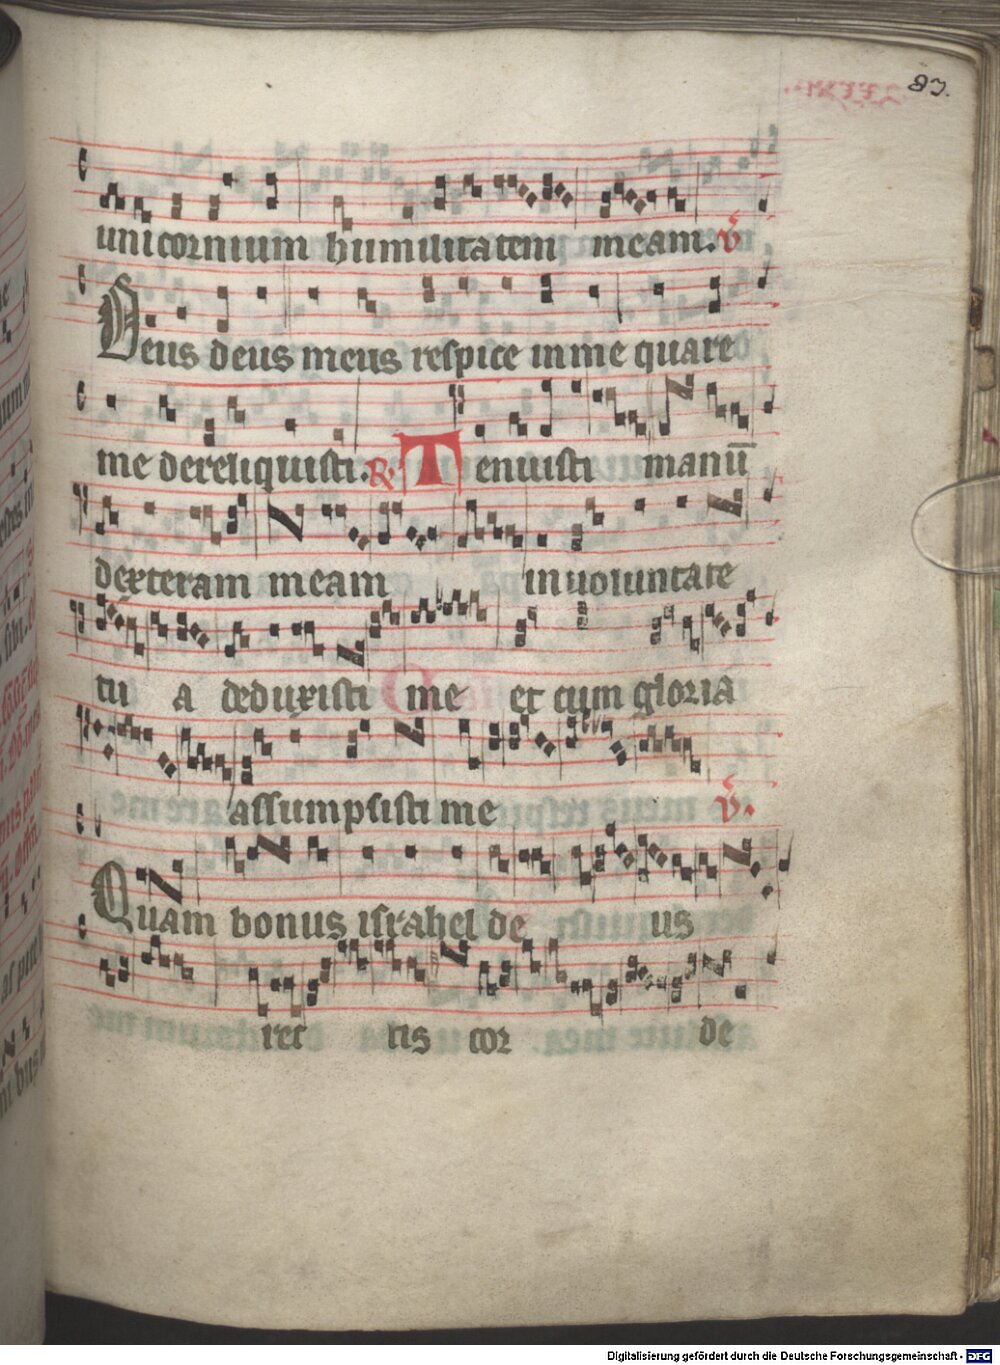 83.
unicornium humilitatem meam. v̄
Deus deus meus respice in me quare
me dereliquisti. R̸ Tenuisti manū
dexteram meam in uoluntate
tu a deduxisti me et cum gloria
assumpsisti me v̄.
Quam bonus israhel de us
rec tis cor de
Digitalisierung gefördert durch die Deutsche Forschungsgemeinschaft - DFG